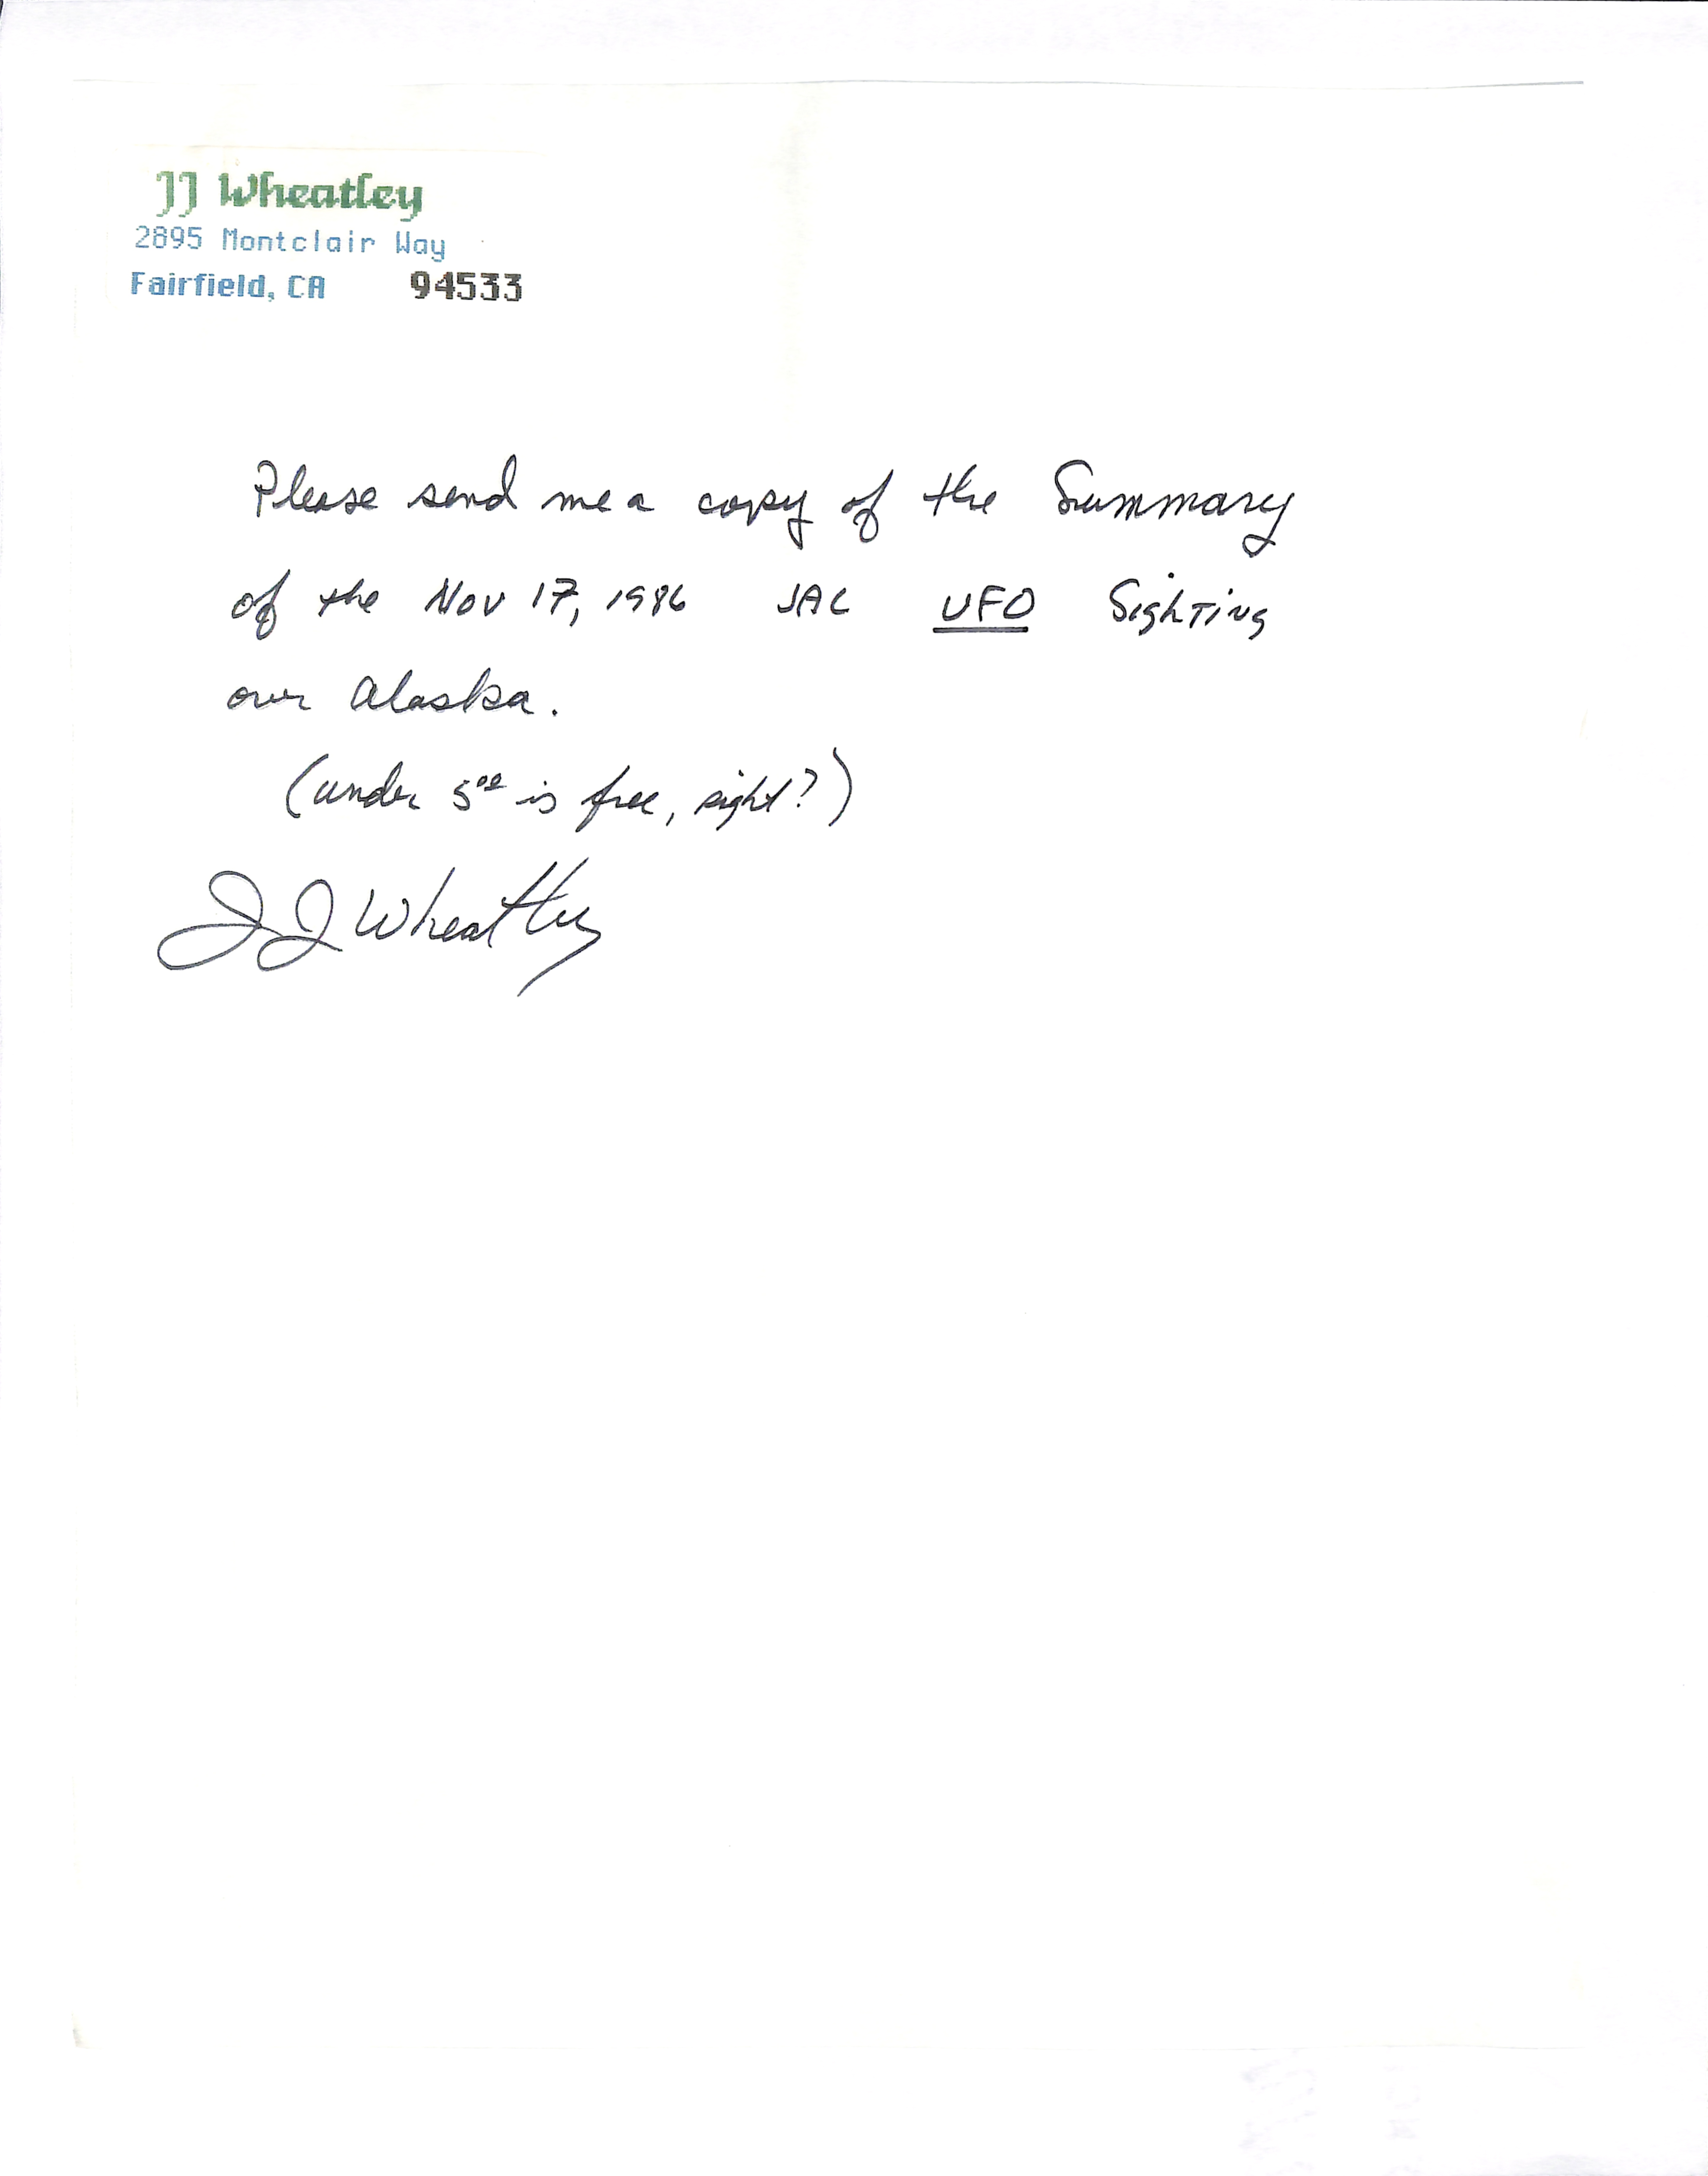 JJ Wheatley
2895 Montclair Way
Fairfield, CA 94533
Please send me a copy of the Summary
of the Nov 17, 1986 JAL UFO Sighting
over Alaska.
(under 5⁰⁰ is free, right?)
JJ Wheatley